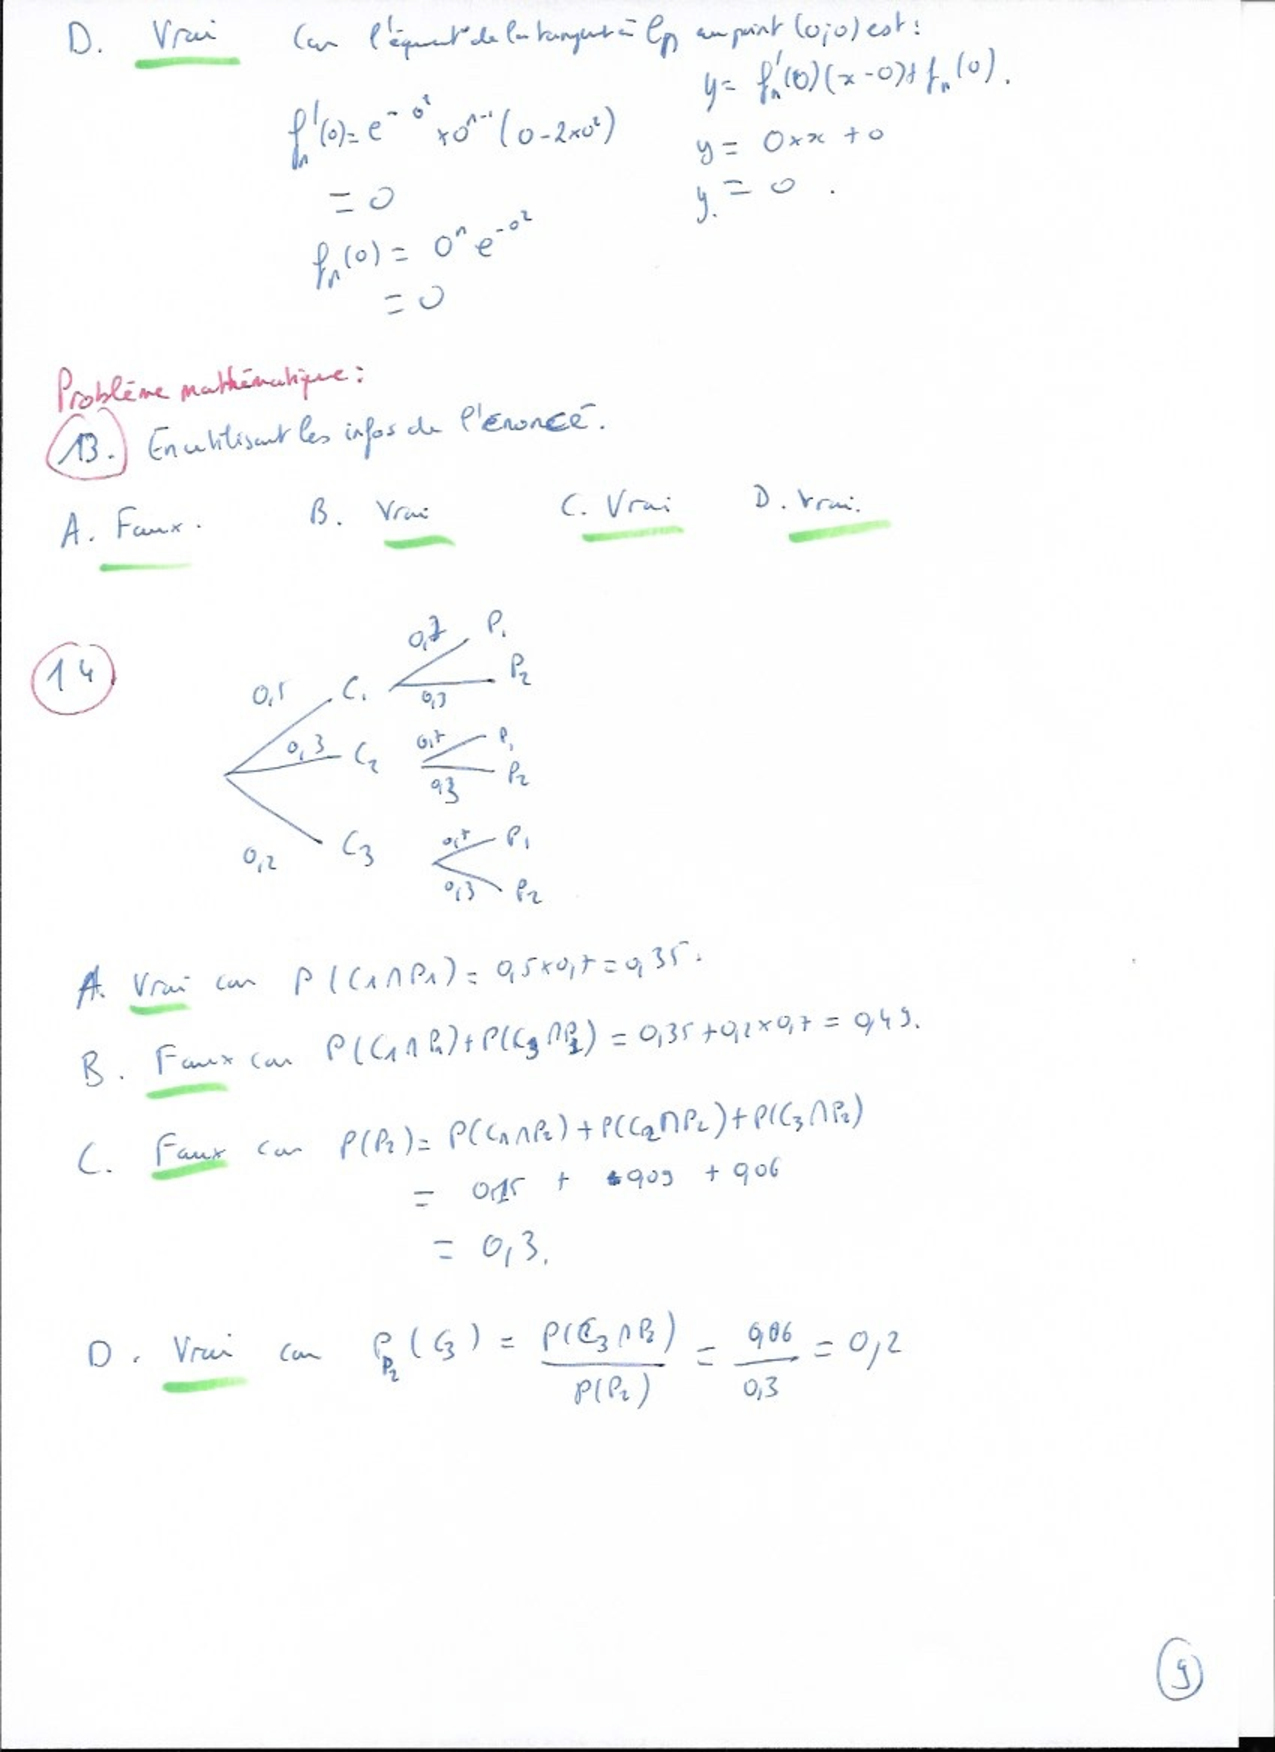 D. Vrai Car l'équat° de la tangente à Cn au point (0;0) est :
y = fn'(0)(x-0)+fn(0).
fn'(0) = e^-0² × 0^n-1 (0-2×0²)
y = 0×x + 0
= 0
y = 0 .
fn(0) = 0^n e^-0²
= 0
Problème mathématique :
13. En utilisant les infos de l'énoncé.
A. Faux. B. Vrai C. Vrai D. Vrai.
14
0,7 P1
0,5 C1 P2
0,3
0,3 C2 0,7 P1
0,3 P2
0,2 C3 0,7 P1
0,3 P2
A. Vrai car P(C1∩P1) = 0,5×0,7 = 0,35.
B. Faux car P(C1∩P1)+P(C3∩P1) = 0,35+0,2×0,7 = 0,49.
C. Faux car P(P2) = P(C1∩P2)+P(C2∩P2)+P(C3∩P2)
= 0,15 + 0,09 + 0,06
= 0,3.
D. Vrai car P_P2 (C3) = P(C3∩P2) / P(P2) = 0,06 / 0,3 = 0,2
9